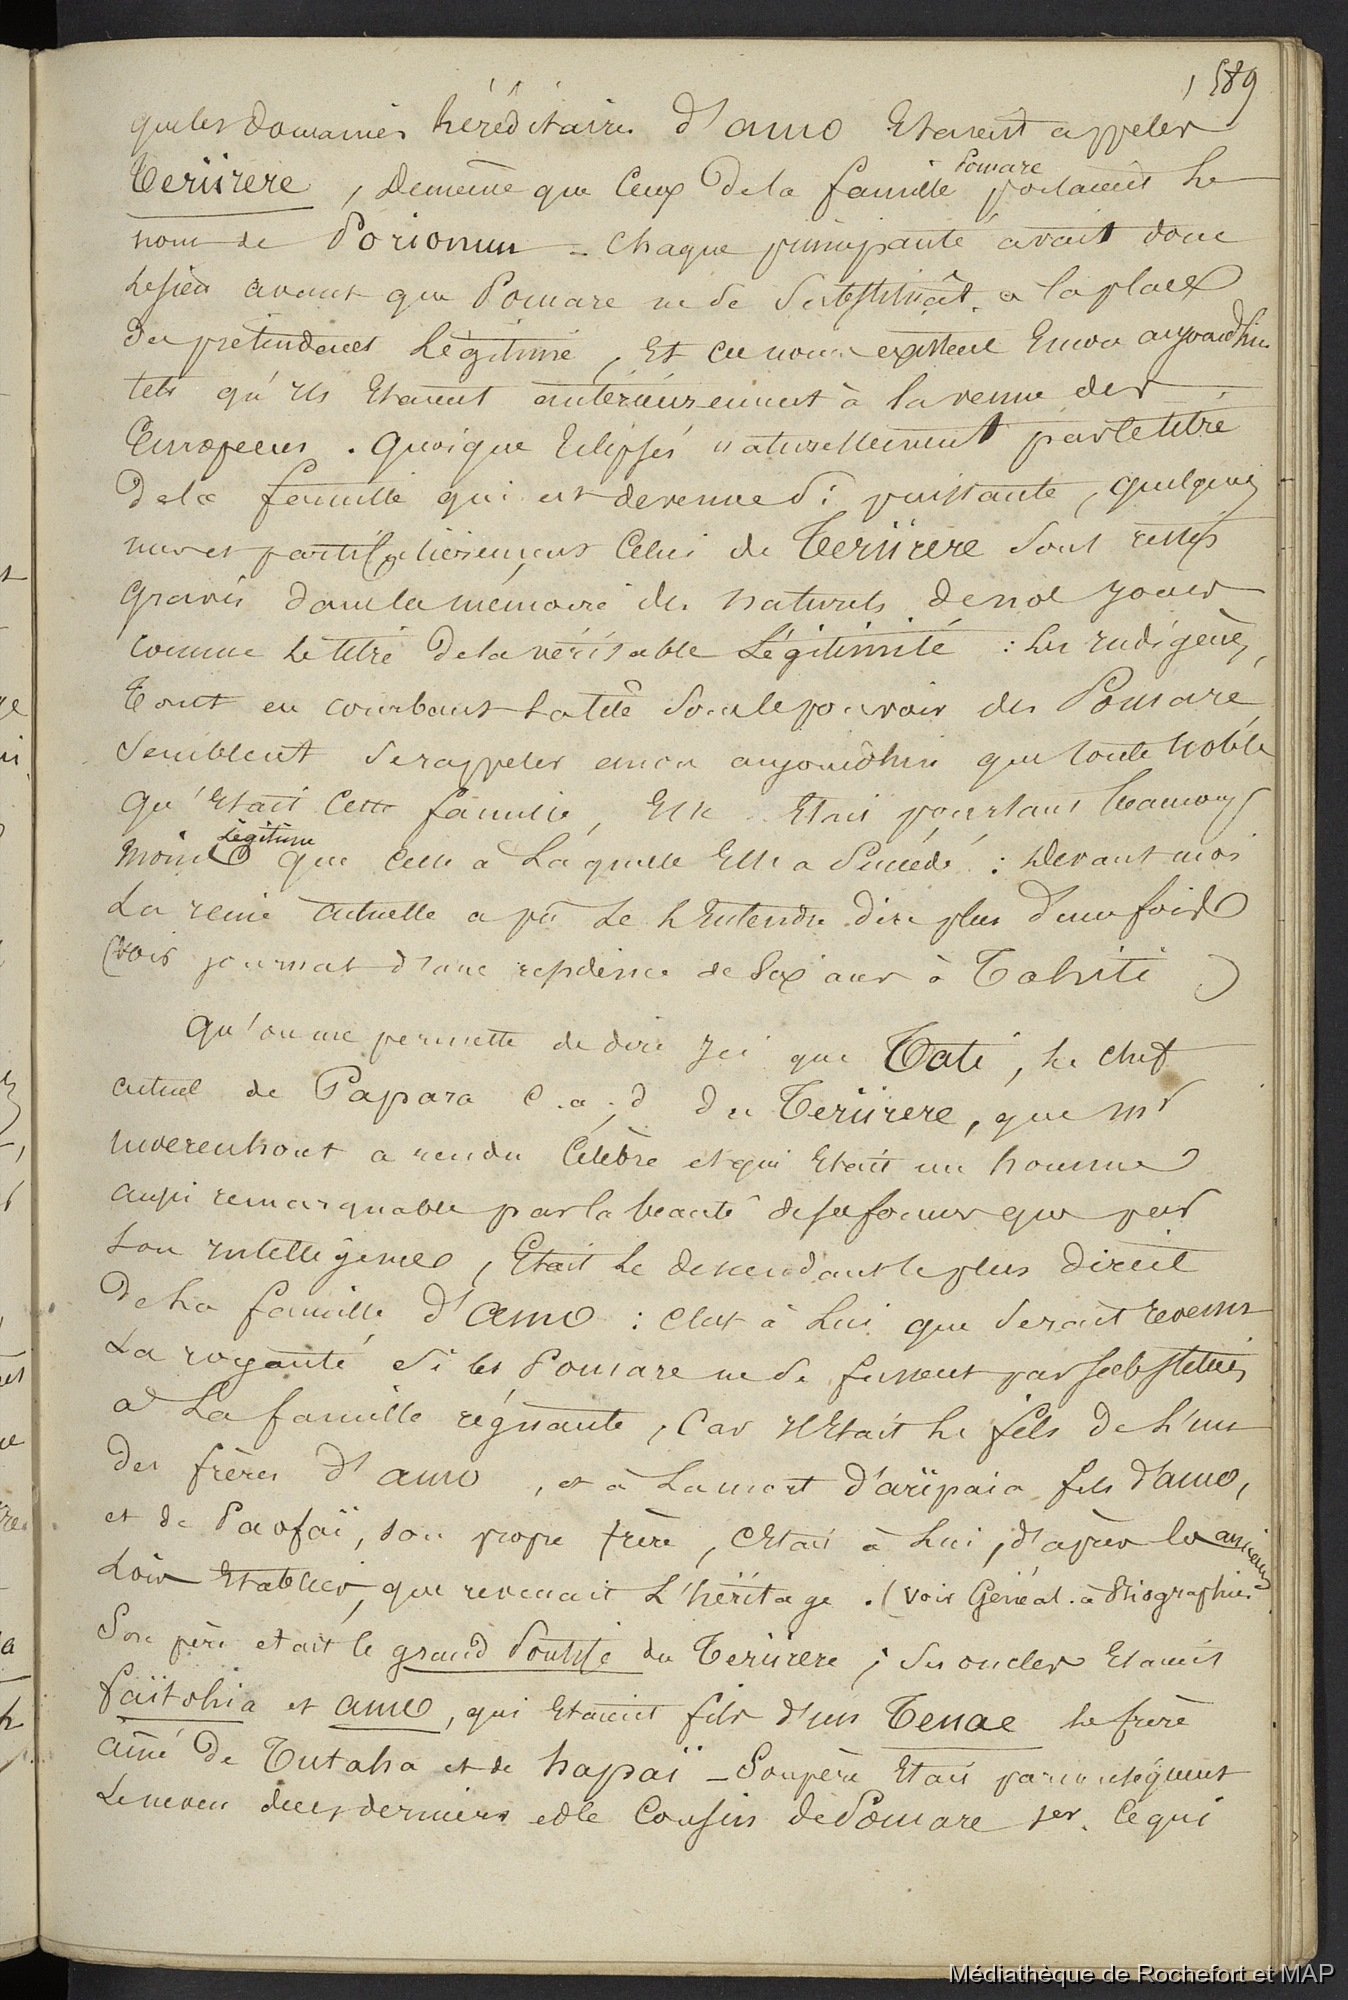 1589
que les domaines héréditaires d'amo Etaient appeler
Teriirere, demême que Ceux de la famille Pomare portaient le
nom de Porionuu - Chaque principauté avait donc
le sien avant que Pomare ne se substituât a la place
du prétendant Légitime, Et ces noms existent Encor aujourdhui
tels qu'ils Etaient antérieurement à la venue des
Européens. Quoique Eclipsés naturellement par le titre
de la famille qui est devenue Si puissante, quelques
uns et particulièrement Celui de Teriirere Sont restés
Gravés dans la mémoire des naturels de nos jours
comme le titre de la véritable Légitimité : les indigènes,
Tout en courbant la tête sous le pouvoir des Pomare,
Semblent Se rappeler encor aujourdhui que toute noble
qu'Etait Cette famille, Elle Etait pourtant beaucoup
moins Légitime que Celle a Laquelle Elle a Succédé : Devant moi
La reine actuelle a pû Se L'Entendre dire plus d'une fois
(voir journal d'une residence de Six ans à Tahiti )
Qu'on me permette de dire Ici que Tati, le chef
actuel de Papara C. a. d du Teriirere, que Mr
Moerenhout a rendu Célèbre et qui Etait un homme
aussi remarquable par la beauté de ses formes que par
Son Intelligence, Etait le descendant le plus direct
De la famille d'Amo : C'est à Lui que Serait revenu
La royauté Si les Pomare ne Se fussent pas Substitués
a La famille régnante, Car Il Etait le fils de L'un
des frères d'amo, et à La mort d'ariipaia fils d'amo,
et de Paofaï, son propre frère, C'Etait à Lui, d'après les anciennes
Lois Etablies, que revenait L'héritage. (Voir Généal. à Biographies
Son père etait le grand Pontife du Teriirere ; Ses oncles Etaient
faïtohia et amo, qui Etaient fils d'un Tenae le frère
aîné de Tutaha et de hapaï - Son père Etait par conséquent
Le neveu de ces derniers et le Cousin de Pomare 1er. Ce qui
Médiathèque de Rochefort et MAP